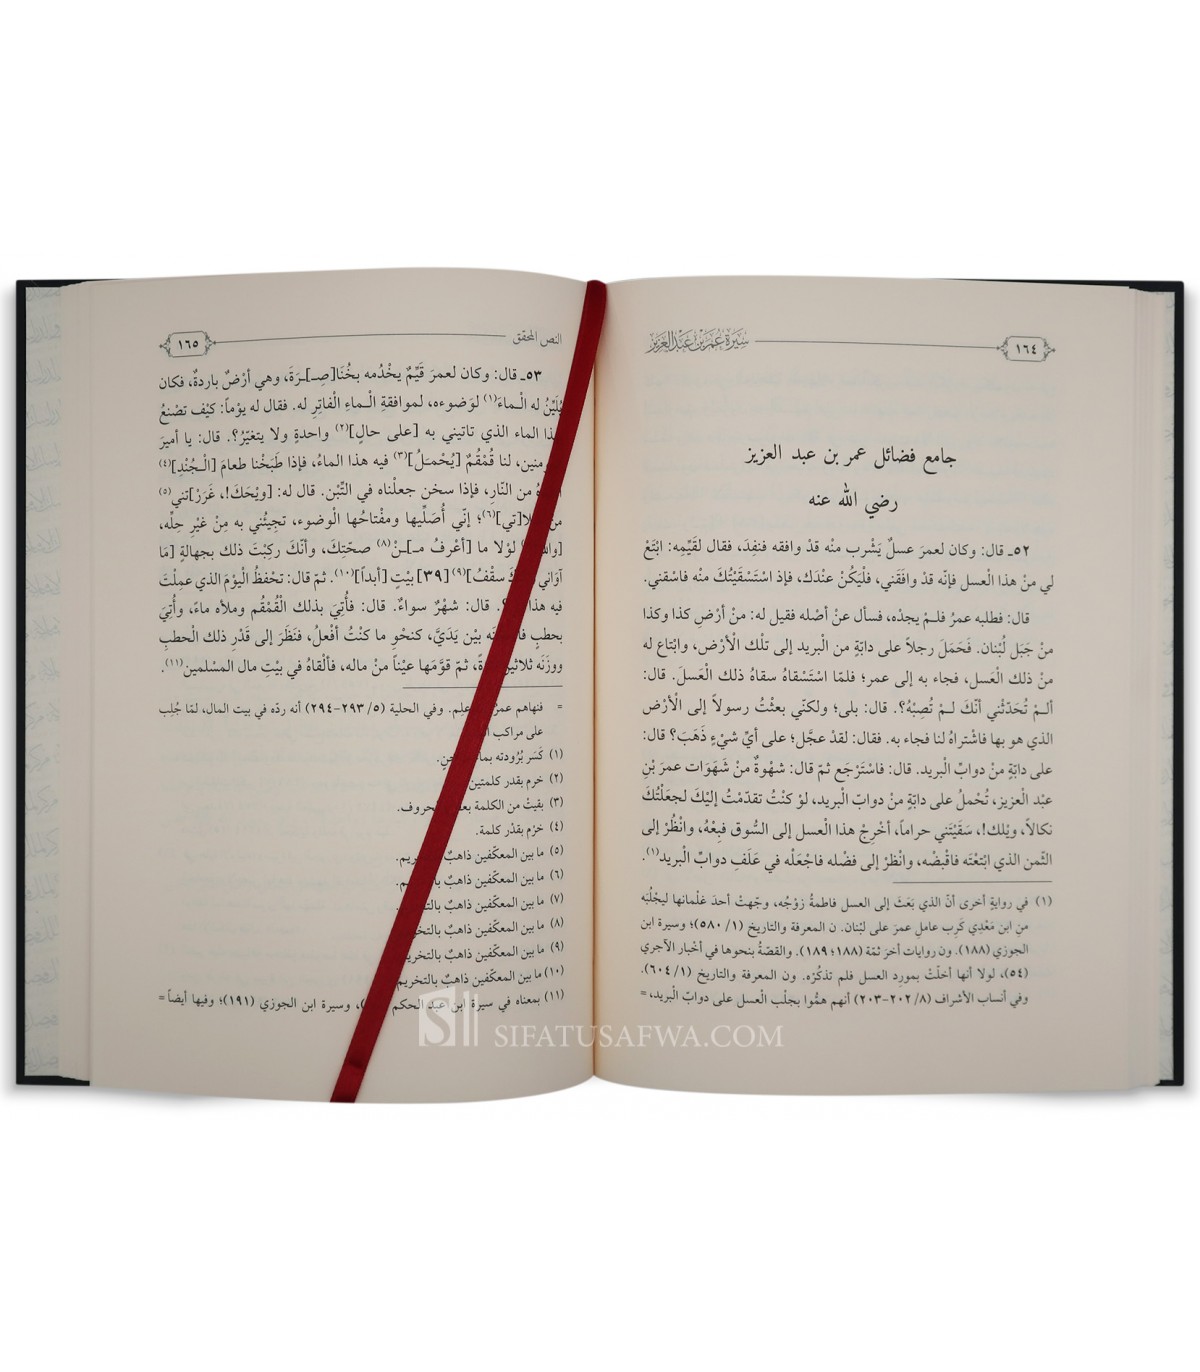 ١٦٤
سيرة عمر بن عبد العزيز
جامع فضائل عمر بن عبد العزيز
رضي الله عنه
٥٢ـ قال: وكان لعمرَ عسلٌ يَشْرب منْه قدْ وافقه فنفِدَ، فقال لقَيِّمِه: ابْتَعْ
لي منْ هذا الْعسل فإنّه قدْ وافَقَني، فلْيَكُنْ عندَك، فإذ اسْتَسْقَيْتُكَ منْه فاسْقني.
قال: فطلبه عمرُ فلـمْ يجدْه، فسأل عنْ أصْله فقيل له: منْ أرْضِ كذا وكذا
منْ جَبَل لُبْنان. فَحَمَل رجلاً على دابّةٍ من البريد إلى تلْك الْأرْض، وابْتاع له
منْ ذلك الْعَسل، فجاء به إلى عمر؛ فلمّا اسْتَسْقاهُ سقاهُ ذلك الْعَسلَ. قال:
ألـمْ تُحَدّثْني أنّكَ لـمْ تُصِبْهُ؟. قال: بلى؛ ولكنّي بعثْتُ رسولاً إلى الْأرْض
الذي هو بها فاشْتراهُ لنا فجاء به. فقال: لقدْ عجَّل؛ على أيِّ شيْءٍ ذَهَبَ؟ قال:
على دابّةٍ منْ دوابِّ البريد. قال: فاسْتَرْجَع ثمّ قال: شهْوةٌ منْ شَهَوَات عمرَ بْنِ
عبْد العزيز، تُحْملُ على دابّةٍ منْ دوابّ البريد، لوْ كنْتُ تقدّمْتُ إليْكَ لجعلْتُكَ
نكالاً، ويْلك!، سَقَيْتَني حراماً، أخْرِجْ هذا الْعسل إلى السُّوق فبِعْهُ، وانْظُرْ إلى
الثّمن الذي ابْتعْتَه فاقْبضْه، وانْظرْ إلى فضْله فاجْعَلْه في عَلَفِ دوابِّ الْبريد(١).
(١) في روايةٍ أخرى أنّ الذي بَعَث إلى العسل فاطمةُ زوْجُه، وجّهتْ أحدَ غلْمانها ليجْلُبَه
منِ ابن مَعْدِي كَرِب عاملِ عمرَ على لبْنان. ن المعرفة والتاريخ (١/ ٥٨٠)؛ وسيرة ابن
الجوزي (١٨٨). ون روايات أخرَ ثمّة (١٨٨؛ ١٨٩). والقصّةُ بنحوها في أخْبار الآجري
(٥٤)، لولا أنها أخلّتْ بمورد العسل فلم تذكُرْه. ون المعرفة والتاريخ (١/ ٦٠٤).
وفي أنساب الأشراف (٨/ ٢٠٢-٢٠٣) أنهم همُّوا بجلْب العسل على دوابّ البريد، =
النص المحقق
١٦٥
٥٣ـ قال: وكان لعمرَ قَيِّمٌ يخْدُمه بخُنَا[صِـ]ـرَةَ، وهي أرْضٌ باردةٌ، فكان
يُلَيْنُ له الْـماءَ(١) لوَضوءه، لموافقةِ الْـماءِ الْفاتِر له. فقال له يوْماً: كيْف تصْنعُ
الماء الذي تاتيني به [على حال](٢) واحدةٍ ولا يتغيّرُ؟. قال: يا أميرَ
لنا قُمْقُمٌ [يُحْمـَلُ](٣) فيه هذا الماءُ، فإذا طَبَخْنا طعامَ [الْـجُنْدِ](٤)
من النّارِ، فإذا سخن جعلْناه في التِّبْن. قال له: [ويْحَكَ!، غَرَرْ]تني(٥)
[تي](٦)؛ إنّي أُصَلِّيها ومفْتاحُها الْوضوء، تجيئُني به مِنْ غيْرِ حِلّه،
لوْلا ما [أعْرفُ مـ]ـنْ(٨) صحّتِكَ، وأنّكَ ركِبْتَ ذلك بجهالةٍ [مَا
آوَاني سقْفُ](٩) [٣٩] بيْتٍ [أبداً](١٠). ثمّ قال: تحْفظُ الْيوْمَ الذي عمِلْتَ
فيه قال: شهْرٌ سواءٌ. قال: فأُتِيَ بذلك الْقُمْقُم وملأه ماءً، وأُتِيَ
بحطبٍ بيْن يَدَيَّ، كنحْوِ ما كنْتُ أفْعلُ، فنَظَرَ إلى قَدْرِ ذلك الْحطبِ
ووزَنَه ثلاثين ثمّ قوَّمَها عيْناً منْ ماله، فألْقاهُ في بيْتِ مال المسْلمين(١١).
= فنهاهم عمرُ علم. وفي الحلية (٥/ ٢٩٣-٢٩٤) أنه ردّه في بيت المال، لمّا جُلِب
على مراكب
(١) كَسَر بُرُودته
(٢) خرم بقدر كلمتين
(٣) بقيتْ من الكلمة الحروف.
(٤) خرْم بقدْر كلمة.
(٥) ما بين المعكّفين ذاهبٌ بالتخريم.
(٦) ما بين المعكّفين ذاهبٌ
(٧) ما بين المعكّفين ذاهبٌ
(٨) ما بين المعكّفين ذاهبٌ
(٩) ما بين المعكّفين ذاهبٌ بالتخريم
(١٠) ما بين المعكّفين ذاهبٌ بالتخريم
(١١) بمعناه في سيرة ابن عبد الحكم وسيرة ابن الجوزي (١٩١)؛ وفيها أيضاً =
SIFATUSAFWA.COM